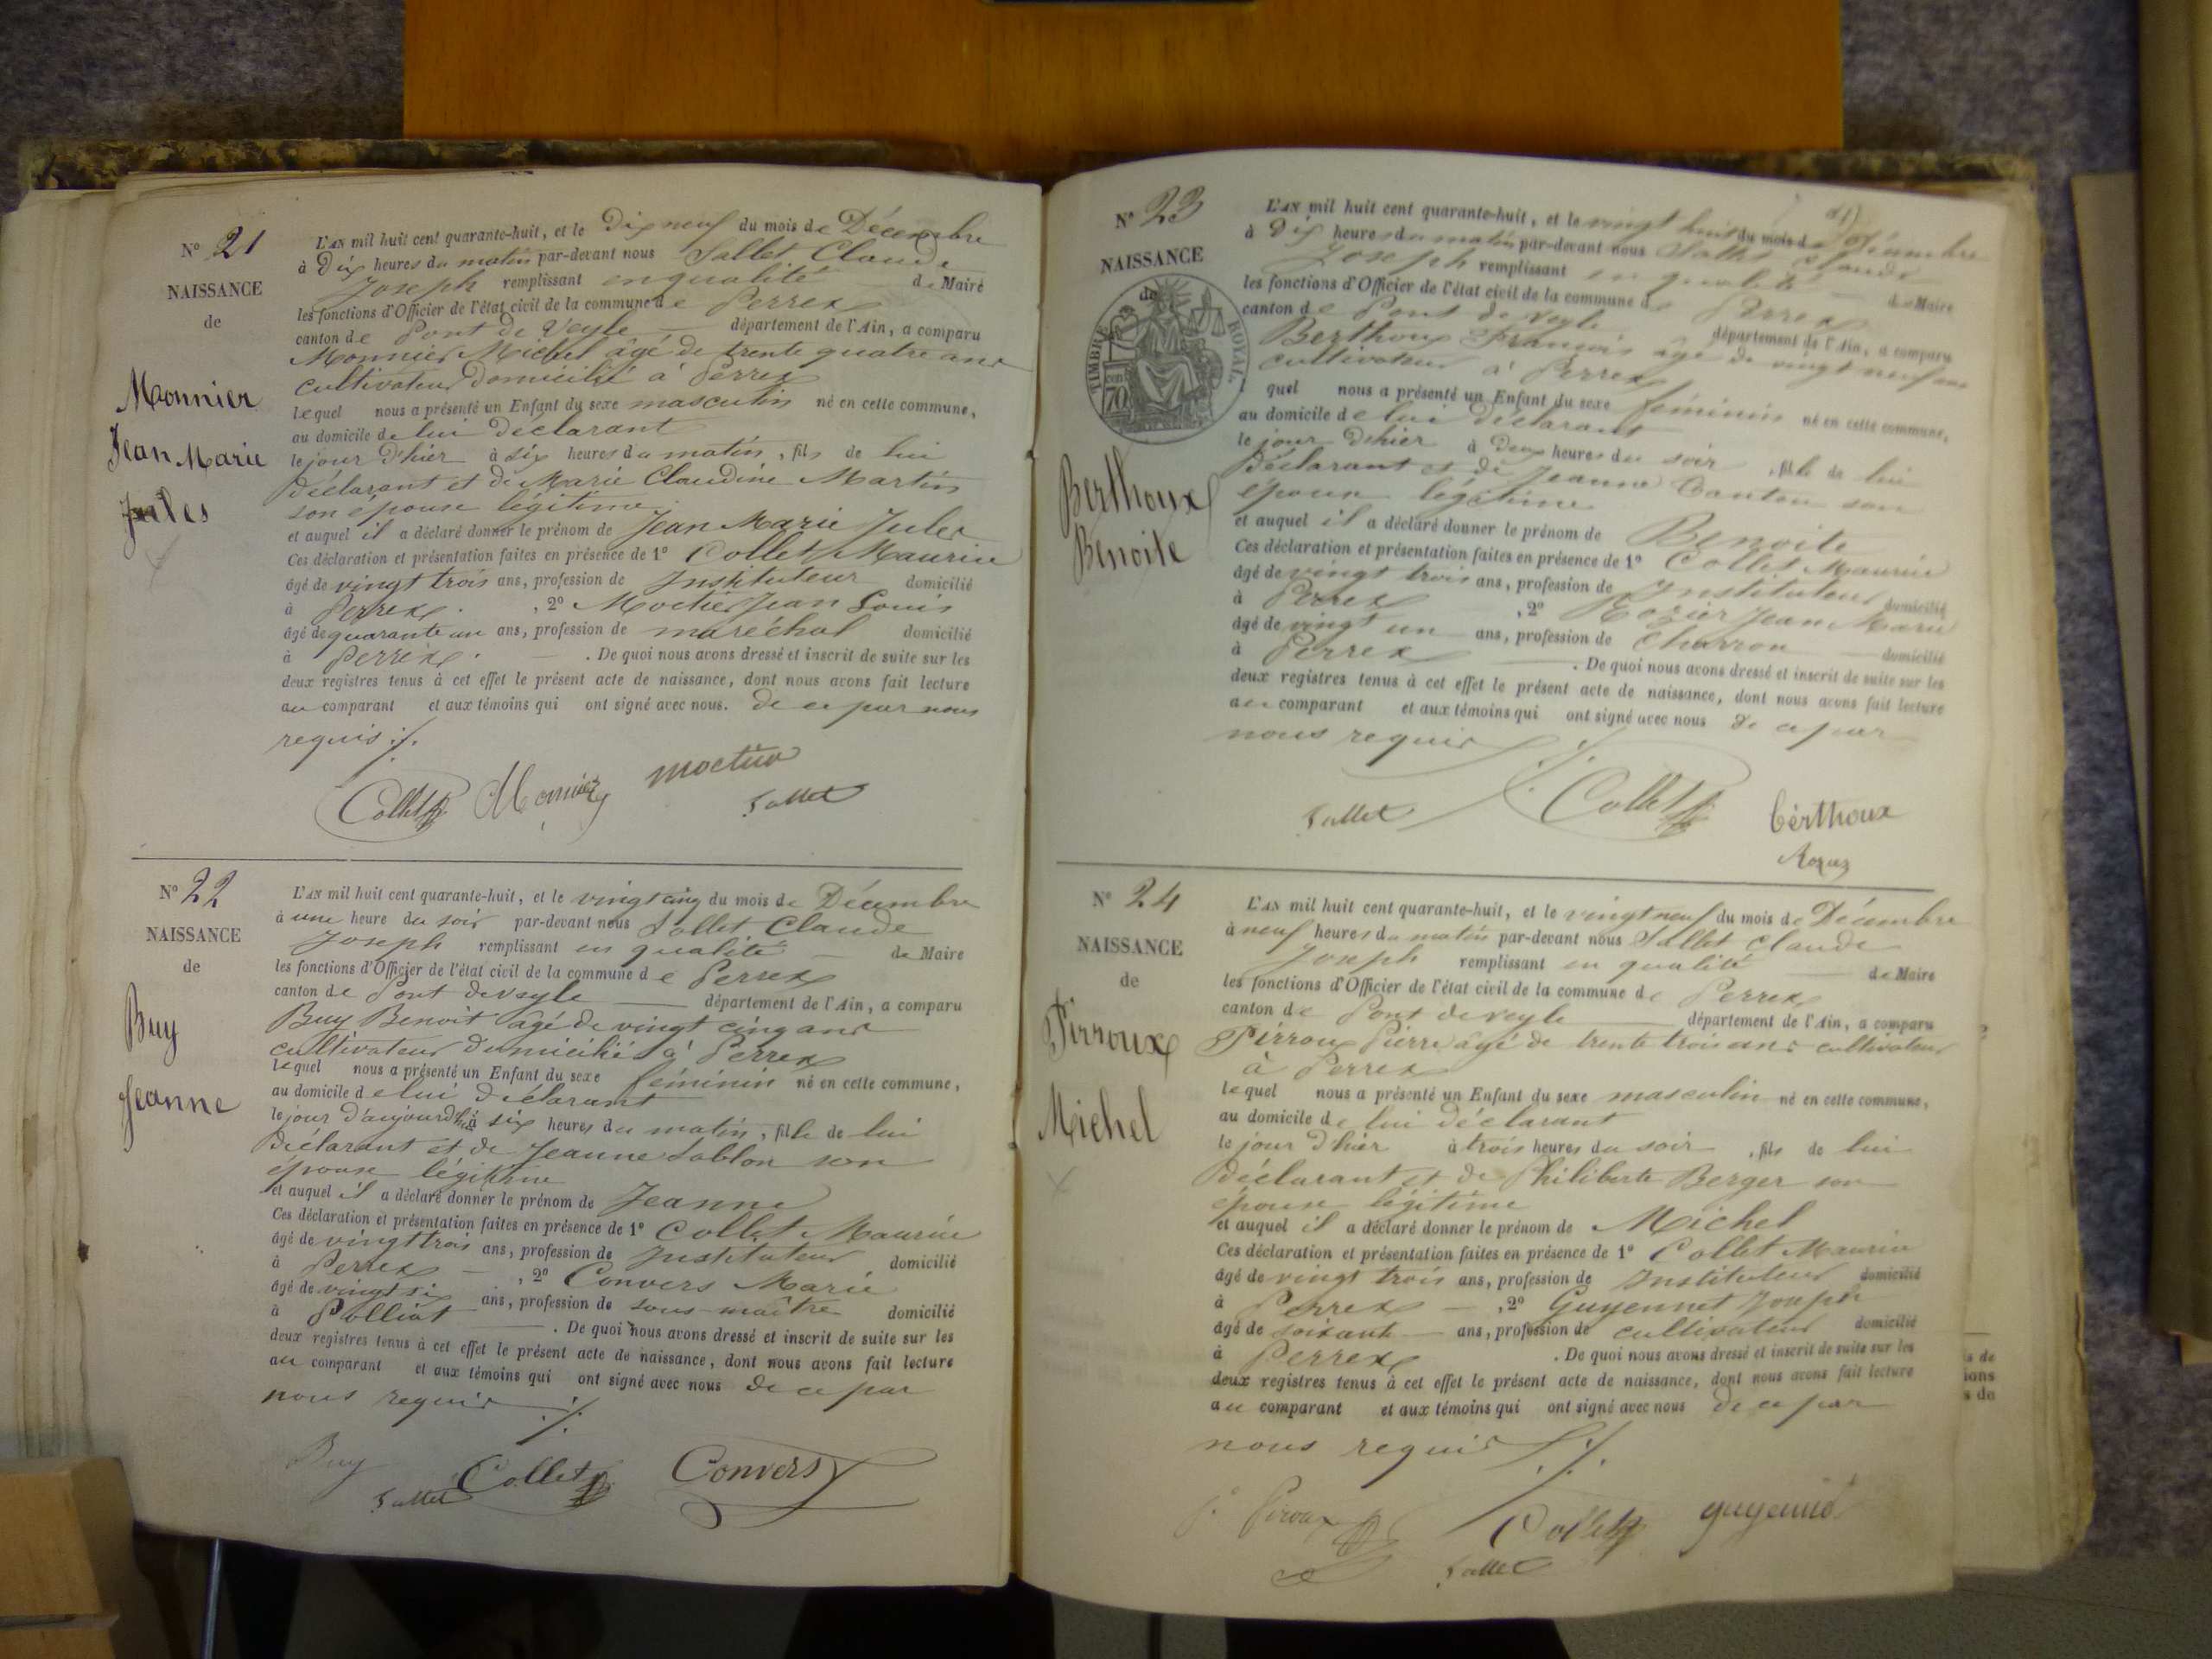 N° 21
NAISSANCE
de
Monnier
Jean Marie
Jules
L'AN mil huit cent quarante-huit, et le Dix neuf du mois de Décembre
à Dix heures du matin par-devant nous Sallet Claude
Joseph remplissant en qualité de Maire
les fonctions d'Officier de l'état civil de la commune de Perrex
canton de Pont de Veyle département de l'Ain, a comparu
Monnier Michel âgé de trente quatre ans
cultivateur domicilié à Perrex
lequel nous a présenté un Enfant du sexe masculin né en cette commune,
au domicile de lui déclarant
le jour d'hier à six heures du matin, fils de lui
déclarant et de Marie Claudine Martin
son épouse légitime
et auquel il a déclaré donner le prénom de Jean Marie Jules
Ces déclaration et présentation faites en présence de 1° Collet Maurice
âgé de vingt trois ans, profession de Instituteur domicilié
à Perrex , 2° Moctier Jean Louis
âgé de quarante un ans, profession de maréchal domicilié
à Perrex . De quoi nous avons dressé et inscrit de suite sur les
deux registres tenus à cet effet le présent acte de naissance, dont nous avons fait lecture
au comparant et aux témoins qui ont signé avec nous. de ce par nous
requis ./.
Collet Monnier Moctier
Sallet
N° 22
NAISSANCE
de
Buy
Jeanne
L'AN mil huit cent quarante-huit, et le vingt cinq du mois de Décembre
à une heure du soir par-devant nous Sallet Claude
Joseph remplissant en qualité de Maire
les fonctions d'Officier de l'état civil de la commune de Perrex
canton de Pont de veyle département de l'Ain, a comparu
Buy Benoit âgé de vingt cinq ans
cultivateur domicilié à Perrex
lequel nous a présenté un Enfant du sexe féminin né en cette commune,
au domicile de lui déclarant
le jour d'aujourd'hui à six heures du matin, fille de lui
déclarant et de Jeanne Sablon son
épouse légitime
et auquel il a déclaré donner le prénom de Jeanne
Ces déclaration et présentation faites en présence de 1° Collet Maurice
âgé de vingt trois ans, profession de Instituteur domicilié
à Perrex , 2° Convers Marie
âgé de vingt six ans, profession de sous-maître domicilié
à Polliat . De quoi nous avons dressé et inscrit de suite sur les
deux registres tenus à cet effet le présent acte de naissance, dont nous avons fait lecture
au comparant et aux témoins qui ont signé avec nous de ce par
nous requis ./.
Buy Collet Convers
Sallet
N° 23
NAISSANCE
de
TIMBRE ROYAL
70
Berthoux
Benoite
L'AN mil huit cent quarante-huit, et le vingt huit du mois de Décembre
à Dix heures du matin par-devant nous Sallet Claude
Joseph remplissant en qualité de Maire
les fonctions d'Officier de l'état civil de la commune de Perrex
canton de Pont de veyle département de l'Ain, a comparu
Berthoux François âgé de vingt neuf ans
cultivateur à Perrex
quel nous a présenté un Enfant du sexe féminin né en cette commune,
au domicile de lui déclarant
le jour d'hier à Deux heures du soir , fille de lui
déclarant et de Jeanne son
épouse légitime
et auquel il a déclaré donner le prénom de Benoite
Ces déclaration et présentation faites en présence de 1° Collet Maurice
âgé de vingt trois ans, profession de Instituteur domicilié
à Perrex , 2° Rozier Jean Marie
âgé de vingt un ans, profession de charron domicilié
à Perrex . De quoi nous avons dressé et inscrit de suite sur les
deux registres tenus à cet effet le présent acte de naissance, dont nous avons fait lecture
au comparant et aux témoins qui ont signé avec nous de ce par
nous requis ./.
Sallet Collet berthoux
N° 24
NAISSANCE
de
Pirroux
Michel
L'AN mil huit cent quarante-huit, et le vingt neuf du mois de Décembre
à neuf heures du matin par-devant nous Sallet Claude
Joseph remplissant en qualité de Maire
les fonctions d'Officier de l'état civil de la commune de Perrex
canton de Pont de veyle département de l'Ain, a comparu
Pirroux Pierre âgé de trente trois ans cultivateur
à Perrex
lequel nous a présenté un Enfant du sexe masculin né en cette commune,
au domicile de lui déclarant
le jour d'hier à trois heures du soir , fils de lui
déclarant et de Philiberte Berger son
épouse légitime
et auquel il a déclaré donner le prénom de Michel
Ces déclaration et présentation faites en présence de 1° Collet Maurice
âgé de vingt trois ans, profession de Instituteur domicilié
à Perrex , 2° Guyennet Joseph
âgé de soixante ans, profession de cultivateur domicilié
à Perrex . De quoi nous avons dressé et inscrit de suite sur les
deux registres tenus à cet effet le présent acte de naissance, dont nous avons fait lecture
au comparant et aux témoins qui ont signé avec nous de ce par
nous requis ./.
P. Piroux Collet guyennet
Sallet